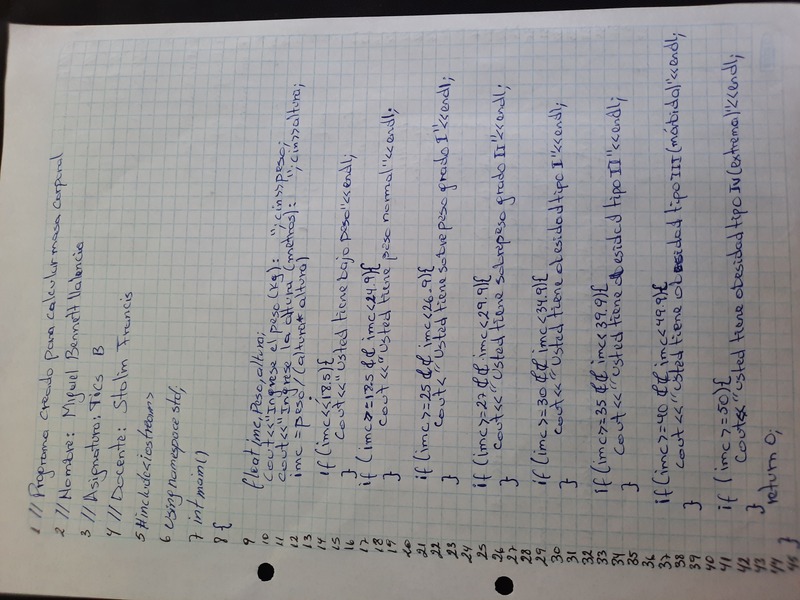 1 // Programa creado para calcular masa corporal
2 // Nombre: Miguel Bennett Valencia
3 // Asignatura: Tics B
4 // Docente: Stalim Francis
5 #include<iostream>
6 Using namespace std;
7 int main()
8 {
9 float imc, Peso, altura;
10 cout<<"Ingrese el peso (kg): ";cin>>peso;
11 cout<<"Ingrese la altura (metros): ";cin>>altura;
12 imc = peso / (altura* altura)
13
14 if (imc<<18.5){
15 cout<<"Usted tiene bajo peso"<<endl;
16 }
17 if (imc>=18.5 && imc<24.9){
18 cout <<"Usted tiene peso normal"<<endl;
19 }
20
21 if (imc>=25 && imc<26.9){
22 cout<"Usted tiene sobrepeso grado I"<<endl;
23 }
24
25 if (imc>=27 && imc<29.9){
26 cout<<"Usted tiene sobrepeso grado II"<<endl;
27 }
28
29 if (imc>=30 && imc<34.9){
30 cout<<"Usted tiene obesidad tipo I"<<endl;
31 }
32
33 if (imc>=35 && imc<39.9){
34 cout<<"Usted tiene obesidad tipo II"<<endl;
35 }
36
37 if (imc>=40 && imc<49.9){
38 cout <<"Usted tiene obesidad tipo III (mórbida)"<<endl;
39 }
40
41 if (imc>=50){
42 cout<<"Usted tiene obesidad tipo IV (extrema)"<<endl;
43 }
44 return 0;
45 }